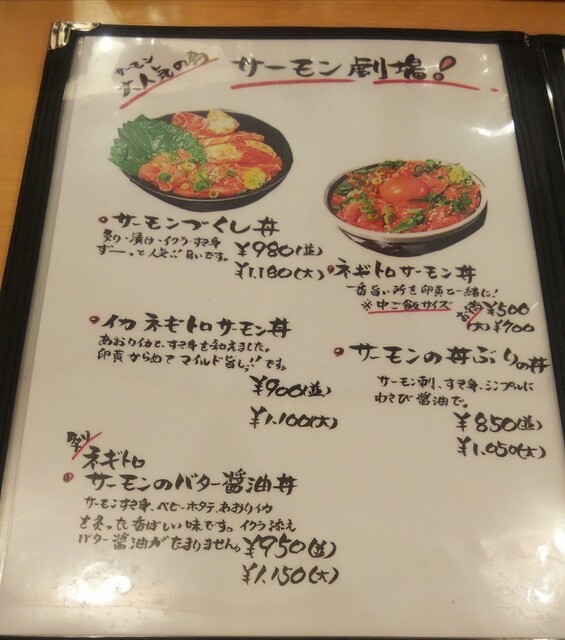 サーモン
大人気の
サーモン劇場!
サーモンづくし丼
炙り・漬け・イクラ・すき身
ずーっと人気!!旨いです。
¥980(並)
¥1,180(大)
ネギトロサーモン丼
一番旨い所を卵黄と一緒に!
※中ご飯サイズ
¥500
(大)¥700
イカ ネギトロサーモン丼
あおりイカと、すき身を和えました。
卵黄からめてマイルド旨しっ!!です。
¥900(並)
¥1,100(大)
サーモンの丼ぶりの丼
サーモン刺、すき身、シンプルに
わさび醤油で。
¥850(並)
¥1,050(大)
ネギトロ
サーモンのバター醤油丼
サーモンすき身、ベビーホタテ、あおりイカ
を炙った香ばしい味です。イクラ添え
バター醤油がたまりません。¥950(並)
¥1,150(大)